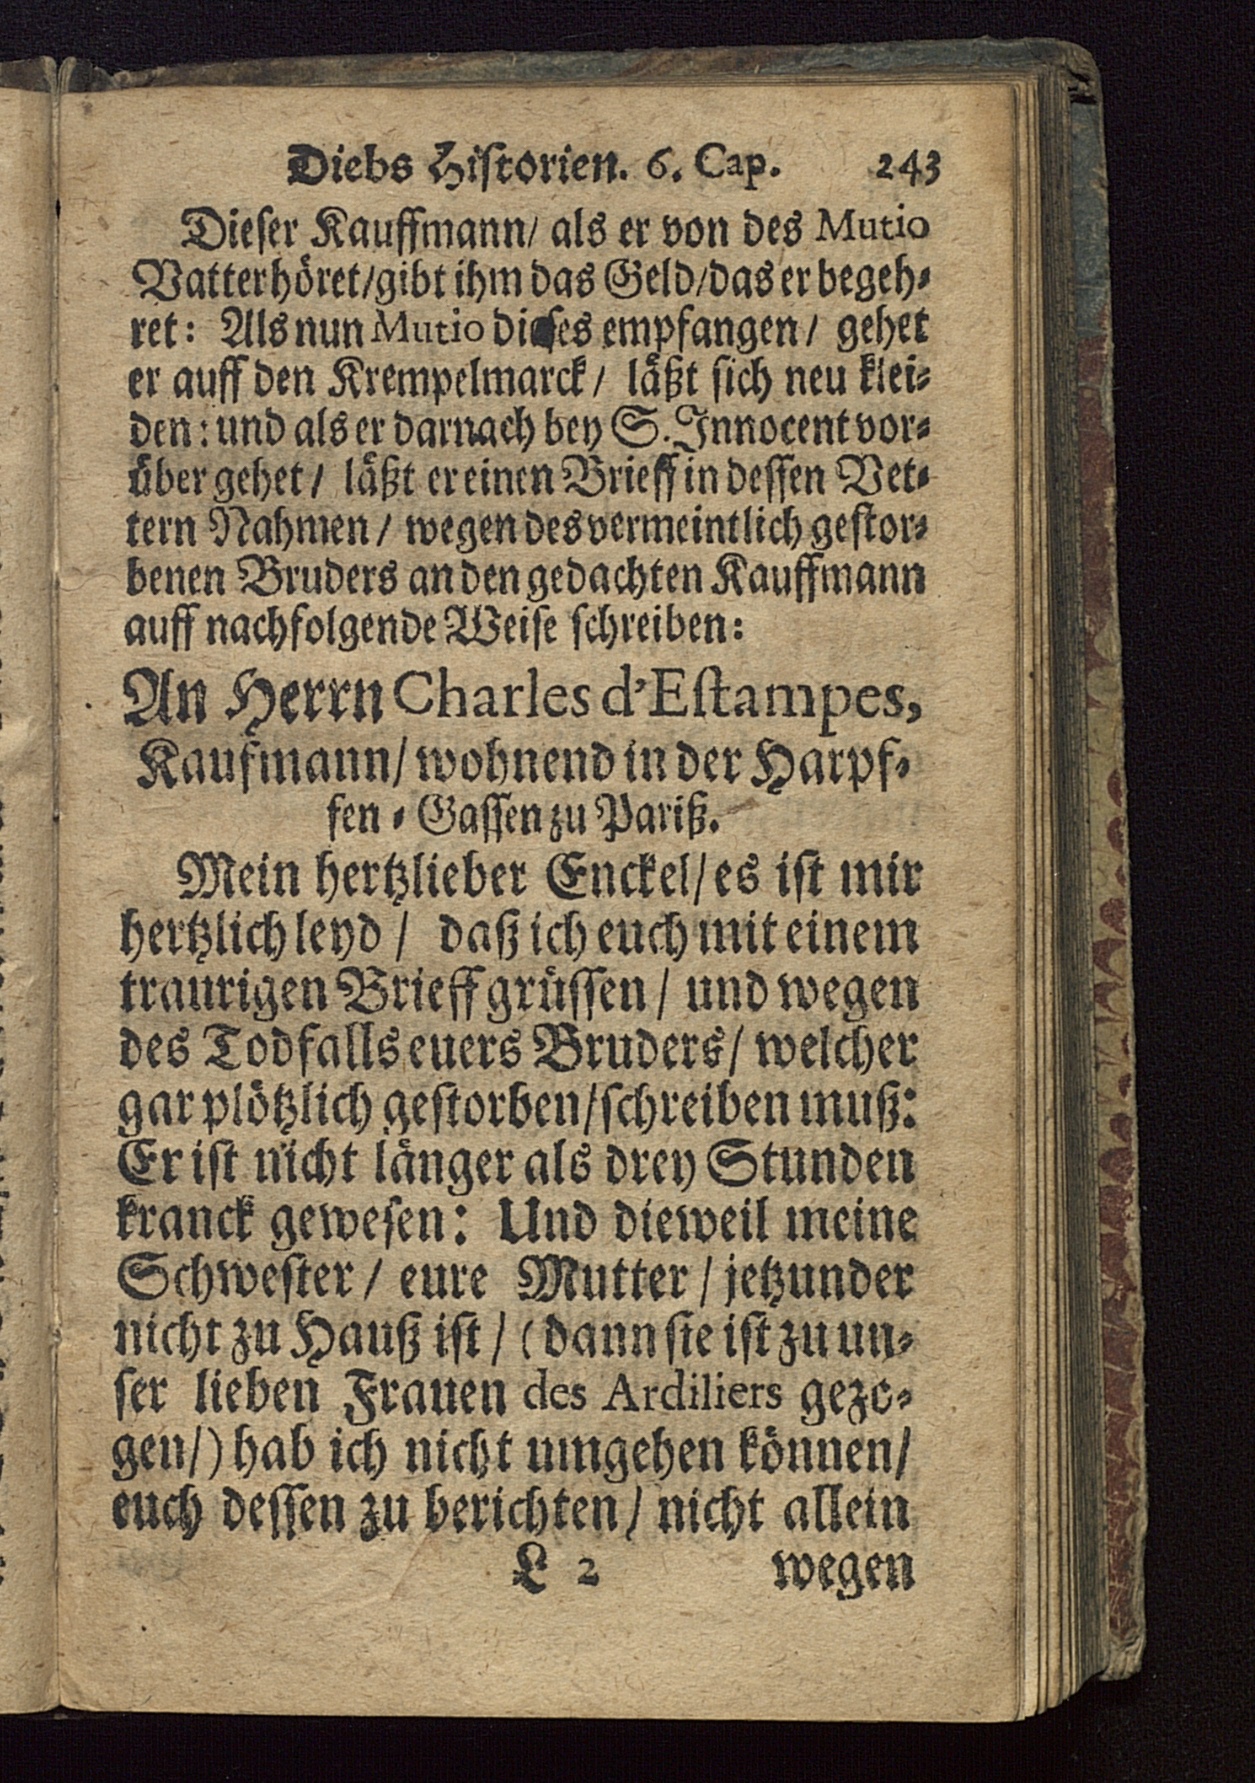 Diebs Historien. 6. Cap. 243
Dieser Kauffmann/ als er von des Mutio
Vatter höret/gibt ihm das Geld/das er begeh-
ret: Als nun Mutio dieses empfangen/ gehet
er auff den Krempelmarck/ läßt sich neu klei-
den: und als er darnach bey S. Innocent vor-
über gehet/ läßt er einen Brieff in dessen Vet-
tern Nahmen/ wegen des vermeintlich gestor-
benen Bruders an den gedachten Kauffmann
auff nachfolgende Weise schreiben:
An Herrn Charles d'Estampes,
Kaufmann/ wohnend in der Harpf-
fen-Gassen zu Pariß.
Mein hertzlieber Enckel/ es ist mir
hertzlich leyd/ daß ich euch mit einem
traurigen Brieff grüssen/ und wegen
des Todfalls euers Bruders/ welcher
gar plötzlich gestorben/schreiben muß:
Er ist nicht länger als drey Stunden
kranck gewesen: Und dieweil meine
Schwester/ eure Mutter/ jetzunder
nicht zu Hauß ist/ (dann sie ist zu un-
ser lieben Frauen des Ardiliers gezo-
gen/) hab ich nicht umgehen können/
euch dessen zu berichten/ nicht allein
L 2 wegen